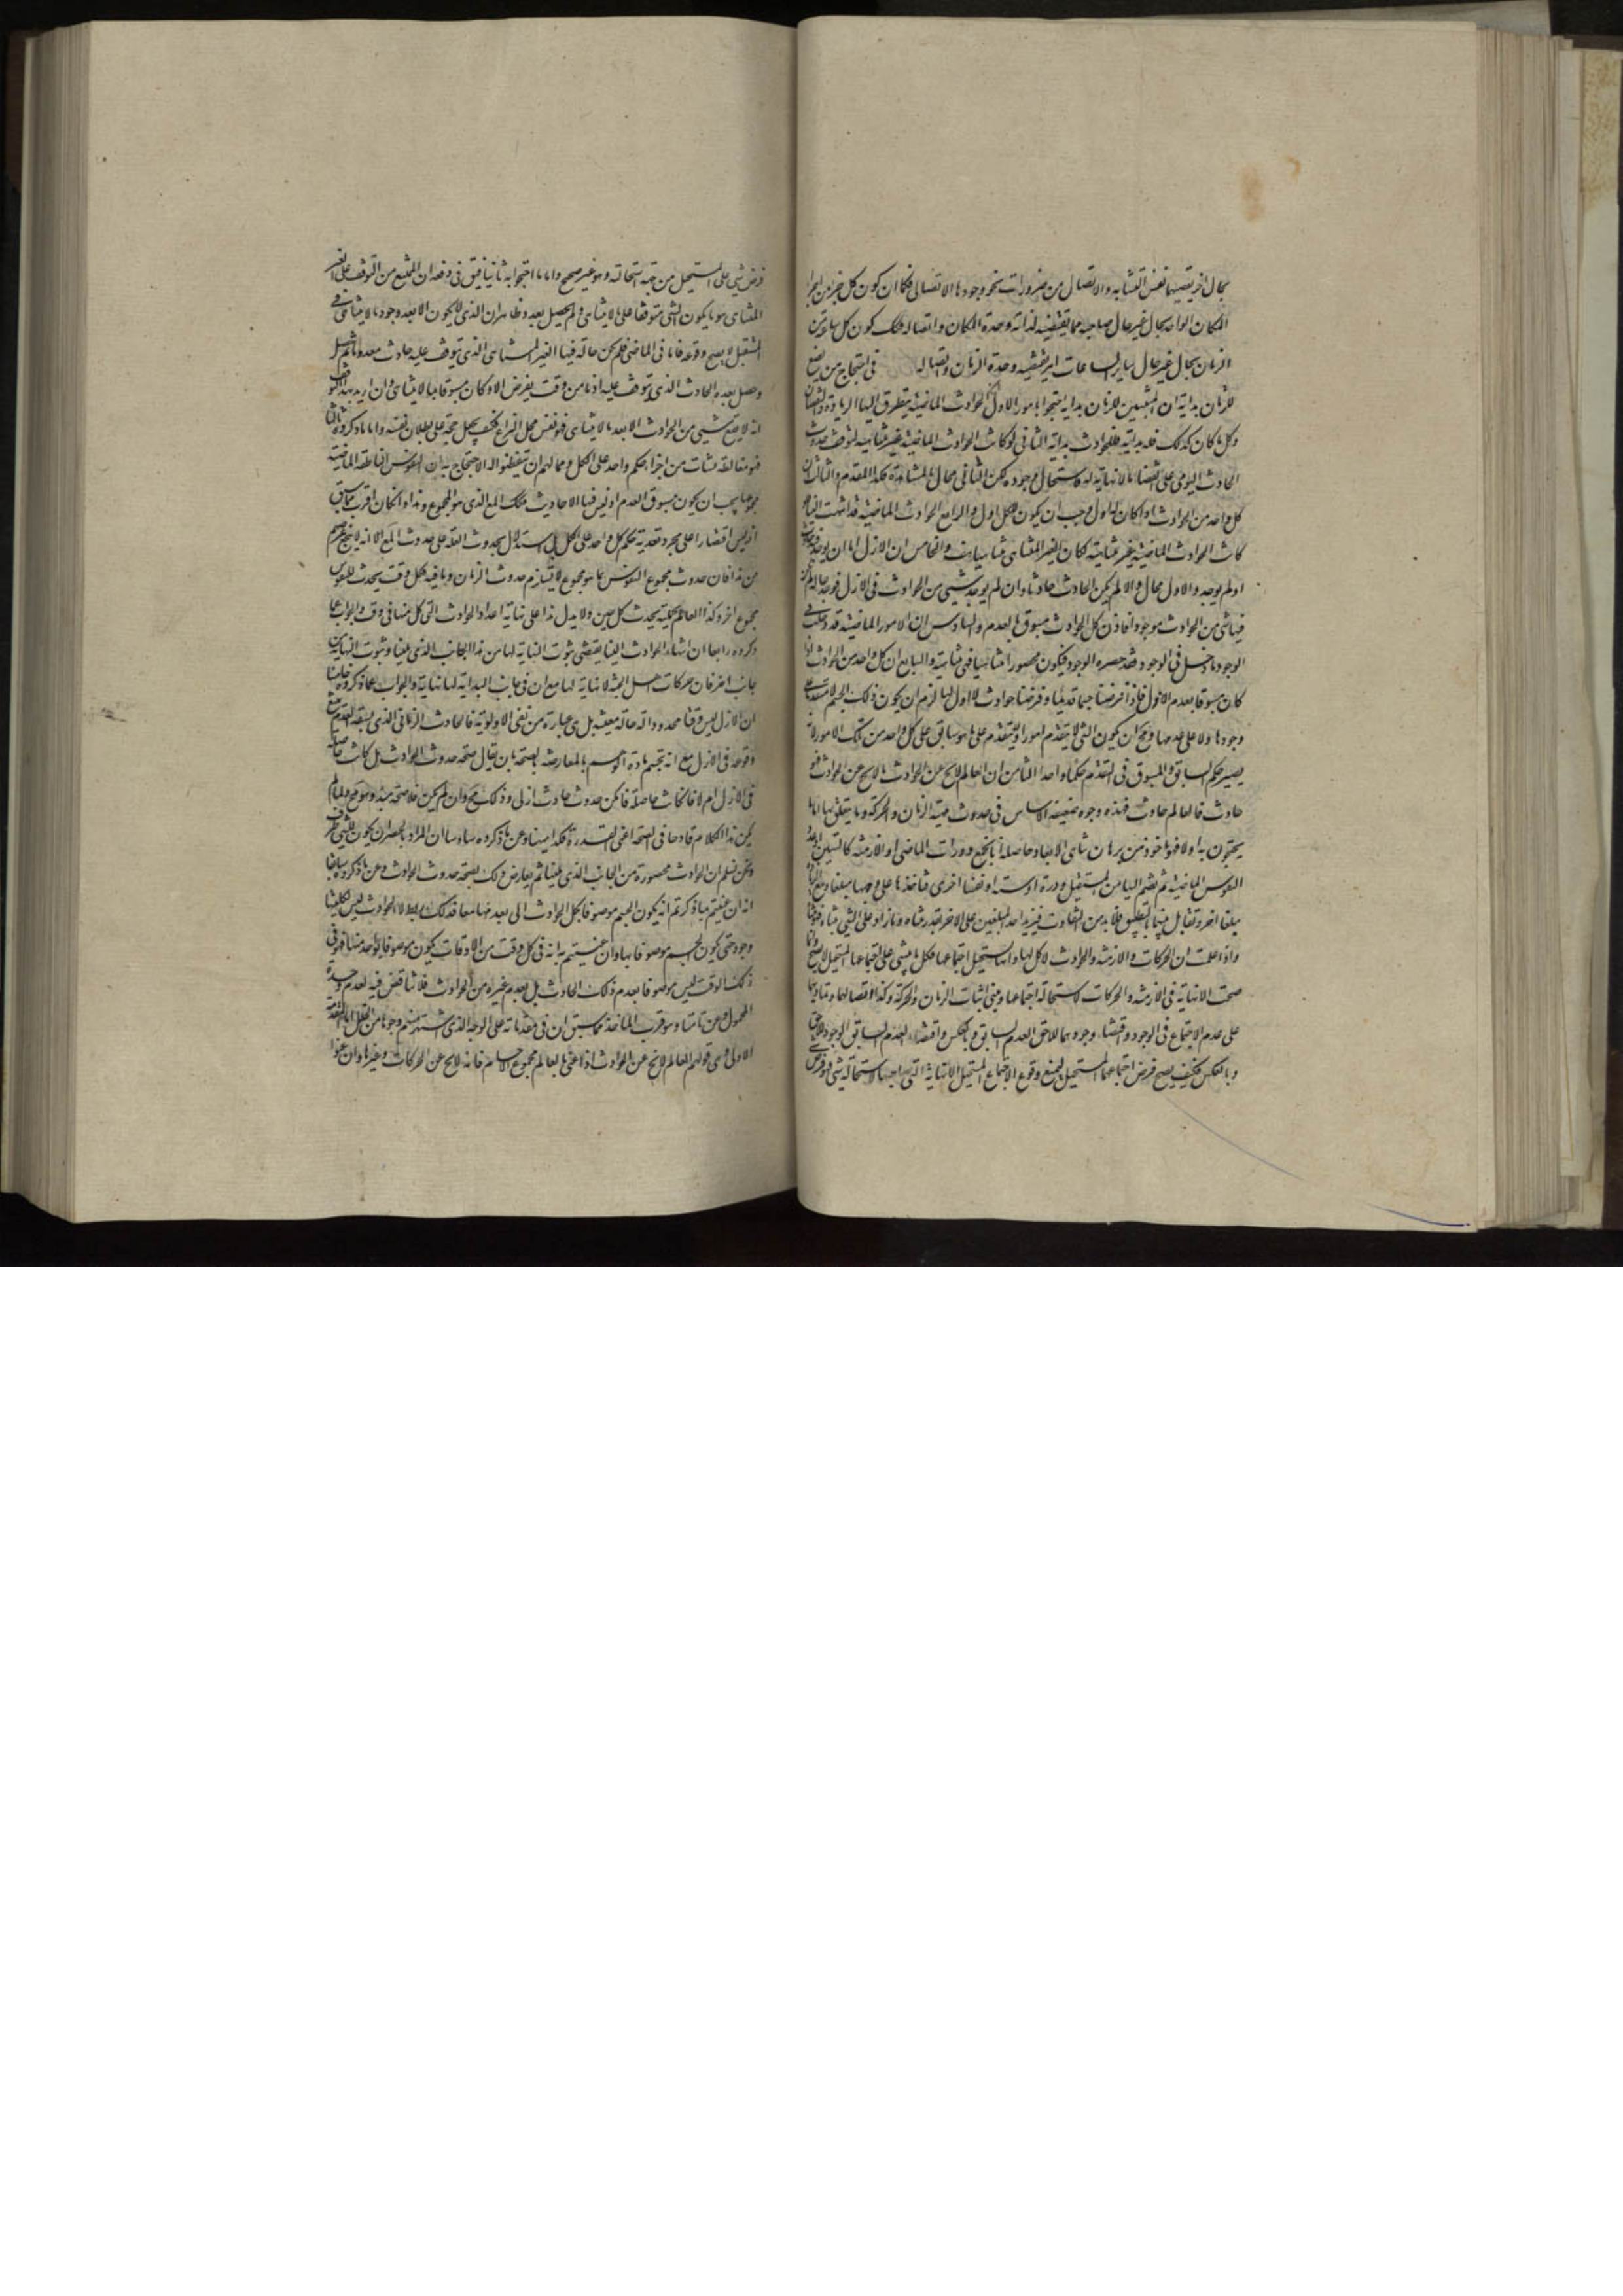 بحال اخر يقتضيها نفس التشابه والاتصال من ضرورات نحو وجودها الاتصالى فكما ان كون كل جزء من اجزاء
المكان الواحد بحال غير حال صاحبه مما يقتضيه لذاته وحدة المكان واتصاله فكذلك كون كل ساعة من
الزمان بحال غير حال ساير الساعات امر يقتضيه وحدة الزمان واتصاله فى احتجاج من يضع
للزمان بداية ان المثبتين للزمان بداية احتجوا بامور الاول ان الحوادث الماضية يتطرق اليها الزيادة والنقصان
وكل ما كان كذلك فله بداية فللحوادث بداية الثانى لو كانت الحوادث الماضية غير متناهية لتوقف حدوث
الحادث اليومى على انقضاء ما لا نهاية له فاستحال وجوده لكن الثانى محال بالمشاهدة فكذا المقدم والثالث ان
كل واحد من الحوادث اذا كان له اول وجب ان يكون للكل اول والرابع الحوادث الماضية قد انتهت الينا فلو
كانت الحوادث الماضية غير متناهية لكان الغير المتناهى متناهيا هف والخامس ان الازل اما ان يوجد فيه حادث
او لم يوجد والاول محال والا لم يكن الحادث حادثا وان لم يوجد شىء من الحوادث فى الازل فوجد حالة لم يكن
فيها شىء من الحوادث موجودا فاذن كل الحوادث مسبوق بالعدم والسادس ان الامور الماضية قد دخلت فى
الوجود وما دخل فى الوجود فقد حصره الوجود فيكون محصورا متناهيا فهى متناهية والسابع ان كل واحد من الحوادث اذا
كان مسبوقا بعدم لا اول له فاذا فرضنا جسما قديما وفرضنا حوادث لا اول لها لزم ان يكون ذلك الجسم لا متقدما على
وجودها ولا على عدمها ومح ان يكون الشى لا يتقدم امورا ولا يتقدم على ما هو سابق على كل واحد من تلك الامور لانه
يصير حكم السابق والمسبوق فى التقدم حكما واحدا الثامن ان العالم لا يخ عن الحوادث وما لا يخ عن الحوادث فهو
حادث فالعالم حادث فهذه وجوه ضعيفة الاساس فى حدوث مهية الزمان والحركة وما يتعلق بها اما ما
يحتجون به اولا فهو ماخوذ من برهان تناهى الابعاد وحاصله ان جميع دورات الماضى او الازمنة كالسنين او
النفوس الماضية ثم يضم اليها من المستقبل دورة او سنة او نفسا اخرى فتاخذها على وجهها مبلغا ومع الزيادة
مبلغا اخر وتقابل بينهما بالتطبيق فلا بد من التفاوت فيزيد احد المبلغين على الاخر بقدر متناه وما زاد على الشى بمتناه فهو متناه
واذا علمت ان الحركات والازمنة والحوادث لا كل لها وانها يستحيل اجتماعها فكل ما يبتنى على اجتماعها المستحيل لا يصح وانما
صحت اللانهاية فى الازمنة والحركات لاستحالة اجتماعها ومبنى اثبات الزمان والحركة وكذا اتصالهما وتماديهما
على عدم الاجتماع فى الوجود واقتضاء وجودهما اللاحق العدم السابق وبالعكس واقتضاء العدم السابق الوجود اللاحق
وبالعكس فكيف يصح فرض اجتماعهما المستحيل ليمنع وقوع الاجتماع المستحيل اللانهاية التى اوجبها استحالة شى هو فرض
فرض شىء على المستحيل من جهة استحالته وهو غير صحيح واما ما احتجوا به ثانيا فيق فى دفعه ان الممتنع من التوقف على الغير
المتناهى هو ما يكون الشى متوقفا على ما لا يتناهى ولم يحصل بعد وظاهر ان الذى لا يكون الا بعد وجود ما لا يتناهى فى
المستقبل لا يصح وقوعه فاما فى الماضى فلم يكن حالة فيها الغير المتناهى الذى يتوقف عليه حادث معدوما ثم حصل
وحصل بعده الحادث الذى يتوقف عليه اذ ما من وقت يفرض الا وكان مسبوقا بما لا يتناهى وان اريد بهذا التوقف
انه لا يقع شىء من الحوادث الا بعد ما لا يتناهى فهو نفس محل النزاع فكيف يجعل حجة على بطلان نفسه واما ما ذكروه ثالثا
فهو مغالطة نشات من اجراء حكم واحد على الكل ومما لهم ان يتفطنوا له الاحتجاج به ان النفوس الناطقة الماضية
مجموعها يجب ان يكون مسبوق العدم اذ ليس فيها الا حادث فكذلك الجمع الذى هو المجموع وهذا وان كان اقرب مما سبق
اذ ليس اقتصارا على مجرد تعدية حكم كل واحد على الكل بل استدلال بحدوث العلة على حدوث المع الا انه لا ينجع غرضهم
من هذا فان حدوث مجموع النفوس بما هو مجموع لا يستلزم حدوث الزمان وما فيه فكل وقت يحدث للنفوس
مجموع اخر وكذا العالم بكليته يحدث كل حين ولا يدل هذا على نهاية اعداد الحوادث التى كل منها فى وقت والجواب عما
ذكروه رابعا ان انتهاء الحوادث الينا يقتضى ثبوت النهاية لها من هذا الجانب الذى يلينا وثبوت النهاية من
جانب اخر فان حركات اهل الجنة لا نهاية لها مع ان فى جانب البداية لها نهاية والجواب عما ذكروه خامسا
ان الازل ليس وقتا محدودا له حالة معينة بل هى عبارة من نفى الاولوية فالحادث الزمانى الذى يسبقه العدم يمتنع
وقوعه فى الازل مع انه يحسم مادة اوهامهم بالمعارضة بالصحة بان يقال صحة حدوث الحوادث هل كانت حاصلة
فى الازل ام لا فان كانت حاصلة فامكن حدوث حادث ازلى وذلك مح وان لم يكن فلا صحة مبدء وهو مح ولما لم
يكن هذا الكلام قادحا فى الصحة اعنى القدرة فكذا ههنا وعن ما ذكروه سادسا ان المراد بالحصر ان يكون للشى طرف
ونحن نسلم ان الحوادث محصورة من الجانب الذى يلينا ثم يعارض ذلك بصحة حدوث الحوادث وعن ما ذكروه سابعا
انه ان عنيتم بما ذكرتم انه يكون الجسم موصوفا بكل الحوادث الى بعد منها معا فذلك باطل لان الحوادث ليس لكليتها
وجود حتى يكون الجسم موصوفا بها وان عنيتم به انه فى كل وقت من الاوقات يكون موصوفا بواحد منها فهو فى
ذلك الوقت ليس موصوفا بعدم ذلك الحادث بل بعدم غيره من الحوادث فلا تناقض فيه لعدم وحدة
المحمول وعن ثامنا وهو قريب الماخذ مما سبق ان فى مقدماته على الوجه الذى اشتهر منهم وجوها من الخلل اما المقدمة
الاولى وهى قولهم العالم لا يخ عن الحوادث اذا عنى بالعالم مجموع الاجسام فانه لا يخ عن الحركات وغيرها وان عنوا